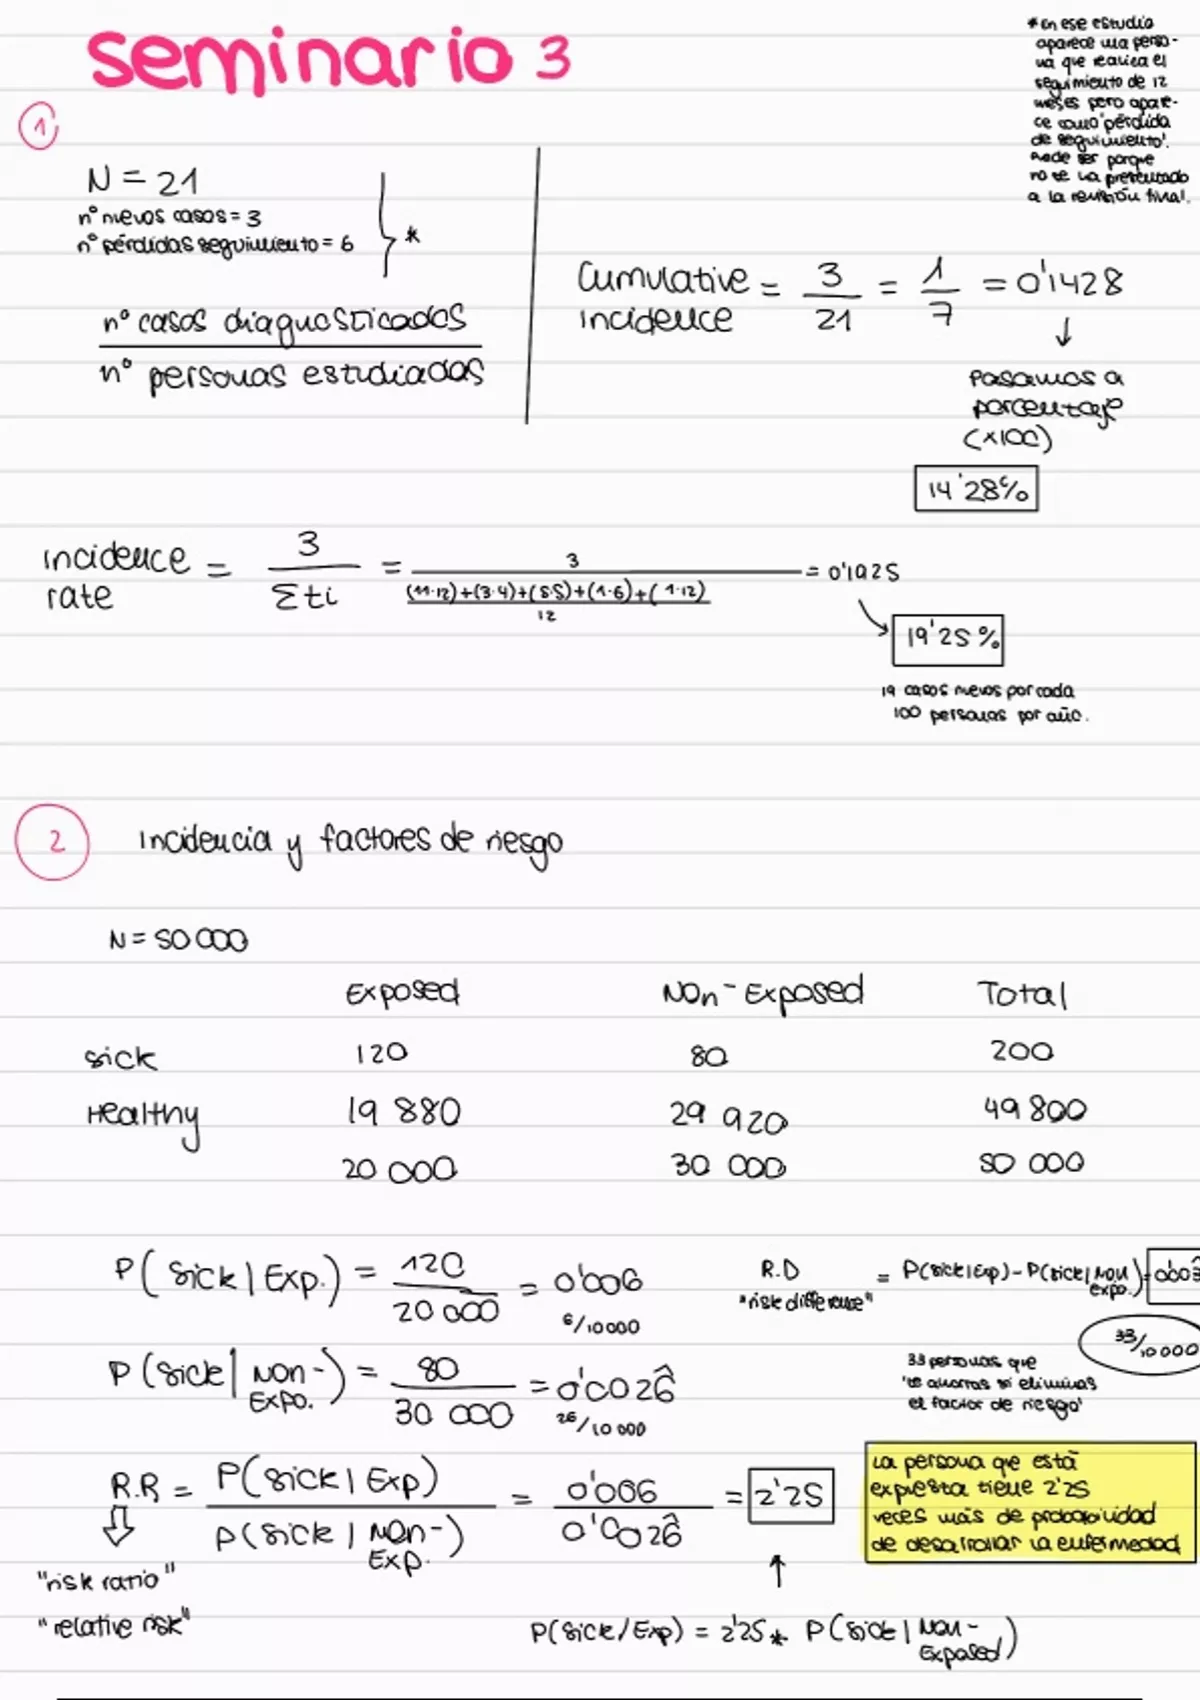 Seminario 3
* En ese estudio
aparece una perso-
na que realiza el
seguimiento de 12
meses pero apare-
ce como 'pérdida
de seguimiento'.
Puede ser porque
no se ha presentado
a la revisión final.
1
N = 21
nº nuevos casos = 3
nº pérdidas seguimiento = 6
*
nº casos diagnosticados
nº personas estudiadas
Cumulative incidence = 3/21 = 1/7 = 0'1428
↓
Pasamos a
porcentaje
(×100)
14'28%
Incidence rate = 3/Σti = 3/(((11·12)+(3·4)+(5·5)+(1·6)+(1·12))/12) = 0'1925
19'25%
19 casos nuevos por cada
100 personas por año.
2 Incidencia y factores de riesgo
N = 50 000
Exposed Non-Exposed Total
Sick 120 80 200
Healthy 19 880 29 920 49 800
20 000 30 000 50 000
P(Sick | Exp.) = 120/20 000 = 0'006
6/10000
R.D = P(sick|exp) - P(sick|Non expo.) = 0'003
"risk difference"
33/10000
33 personas que
'te ahorras si eliminas
el factor de riesgo'
P(Sick | Non-Expo.) = 80/30 000 = 0'0026̂
26/10 000
R.R = P(Sick | Exp)/P(Sick | Non-Exp.) = 0'006/0'0026̂ = 2'25
"risk ratio"
"relative risk"
La persona que está
expuesta tiene 2'25
veces más de probabilidad
de desarrollar la enfermedad
↑
P(Sick/Exp) = 2'25 * P(Sick | Non-Exposed)